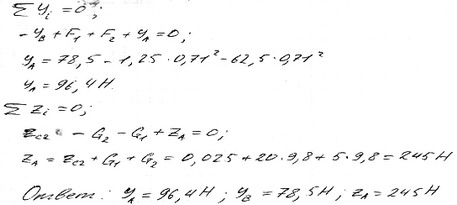 ΣYi=0;
-YB+F1+F2+YA=0;
YA=78,5-1,25·0,71²-62,5·0,71²
YA=96,4H.
ΣZi=0;
-G2-G1+ZA=0;
ZA=ZC2+G1+G2=0,025+20·9,8+5·9,8=245H
Ответ: YA=96,4H; YB=78,5H; ZA=245H